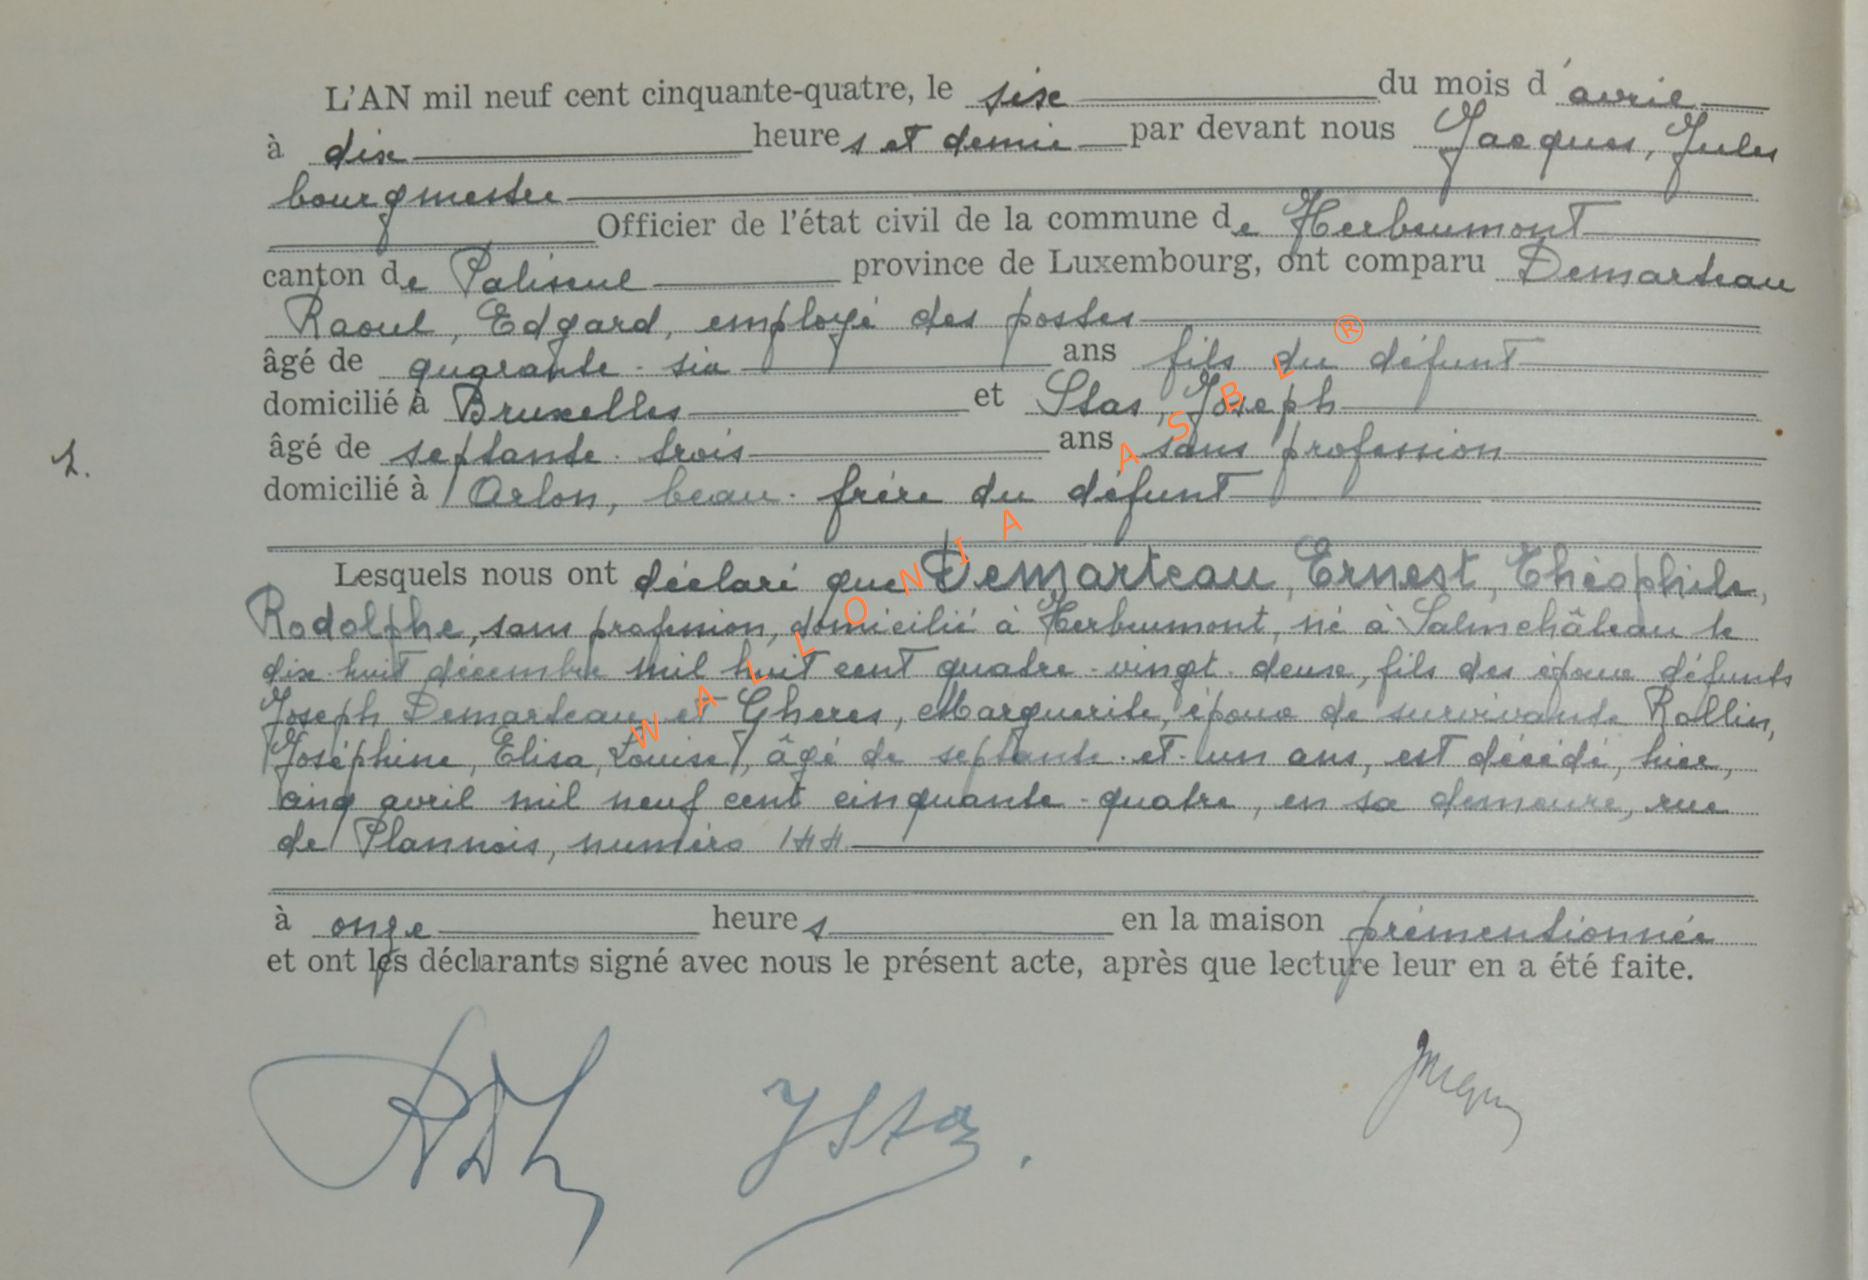 L'AN mil neuf cent cinquante-quatre, le six du mois d'avril
à dix heures et demie par devant nous Jacques, Jules
bourgmestre
Officier de l'état civil de la commune de Herbeumont
canton de Paliseul province de Luxembourg, ont comparu Demarteau
Raoul, Edgard, employé des postes
âgé de quarante-six ans fils du défunt
domicilié à Bruxelles et Stas, Joseph
âgé de septante-trois ans sans profession
2.
domicilié à Arlon, beau-frère du défunt
Lesquels nous ont déclaré que Demarteau, Ernest, Théophile,
Rodolphe, sans profession, domicilié à Herbeumont, né à Salmchâteau le
dix-huit décembre mil huit cent quatre-vingt-deux, fils des époux défunts
Joseph Demarteau et Gheres, Marguerite, époux de survivante Rollin,
Joséphine, Elisa, Louise, âgé de septante-et-un ans, est décédé, hier,
cinq avril mil neuf cent cinquante-quatre, en sa demeure, rue
de Plannois, numéro 144
à onze heures en la maison prémentionnée
et ont les déclarants signé avec nous le présent acte, après que lecture leur en a été faite.
JStas.
Jacques
WALLONIA ASBL ®